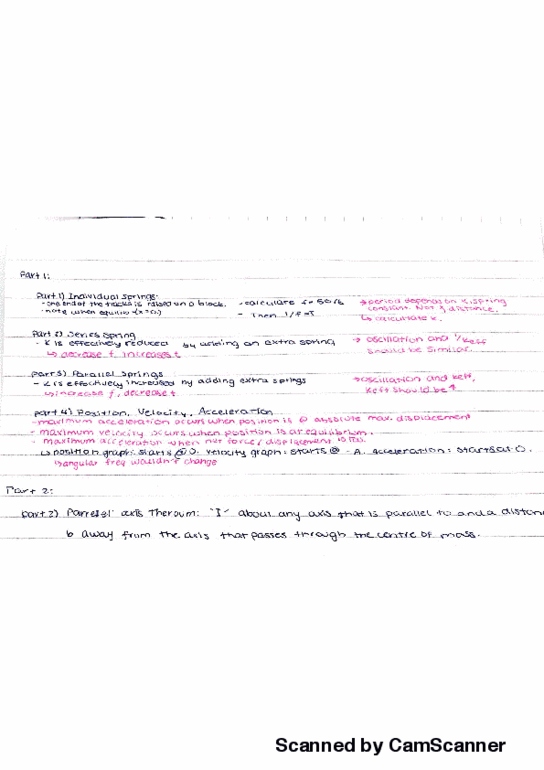 Part 1:
Part 1) Individual Springs:
- one end of the tracks is raised on a block. - calculate f = 50/b → period depends on k, spring
- note when equilib (x=0) - Then 1/f = T constant. Not distance.
↳ calculate k.
Part 2) Series Spring
- K is effectively reduced by adding an extra spring → oscillation and 1/Keff
↳ decrease f, increases t should be similar.
part 3) Parallel Springs
- K is effectively increased by adding extra springs → oscillation and keff,
↳ increase f, decrease t Keff should be ↑
part 4) Position, Velocity, Acceleration
- maximum acceleration occurs when position is @ absolute max. displacement
- maximum velocity occurs when position is at equilibrium.
- maximum acceleration when net force/displacement is
↳ position graph: starts @ 0. velocity graph: starts @ - A. acceleration: starts at 0.
↳ angular freq wouldn't change
Part 2:
part 2) Parrellel axis Theroum: "I" about any axis that is parallel to and a distan
b away from the axis that passes through the centre of mass.
Scanned by CamScanner